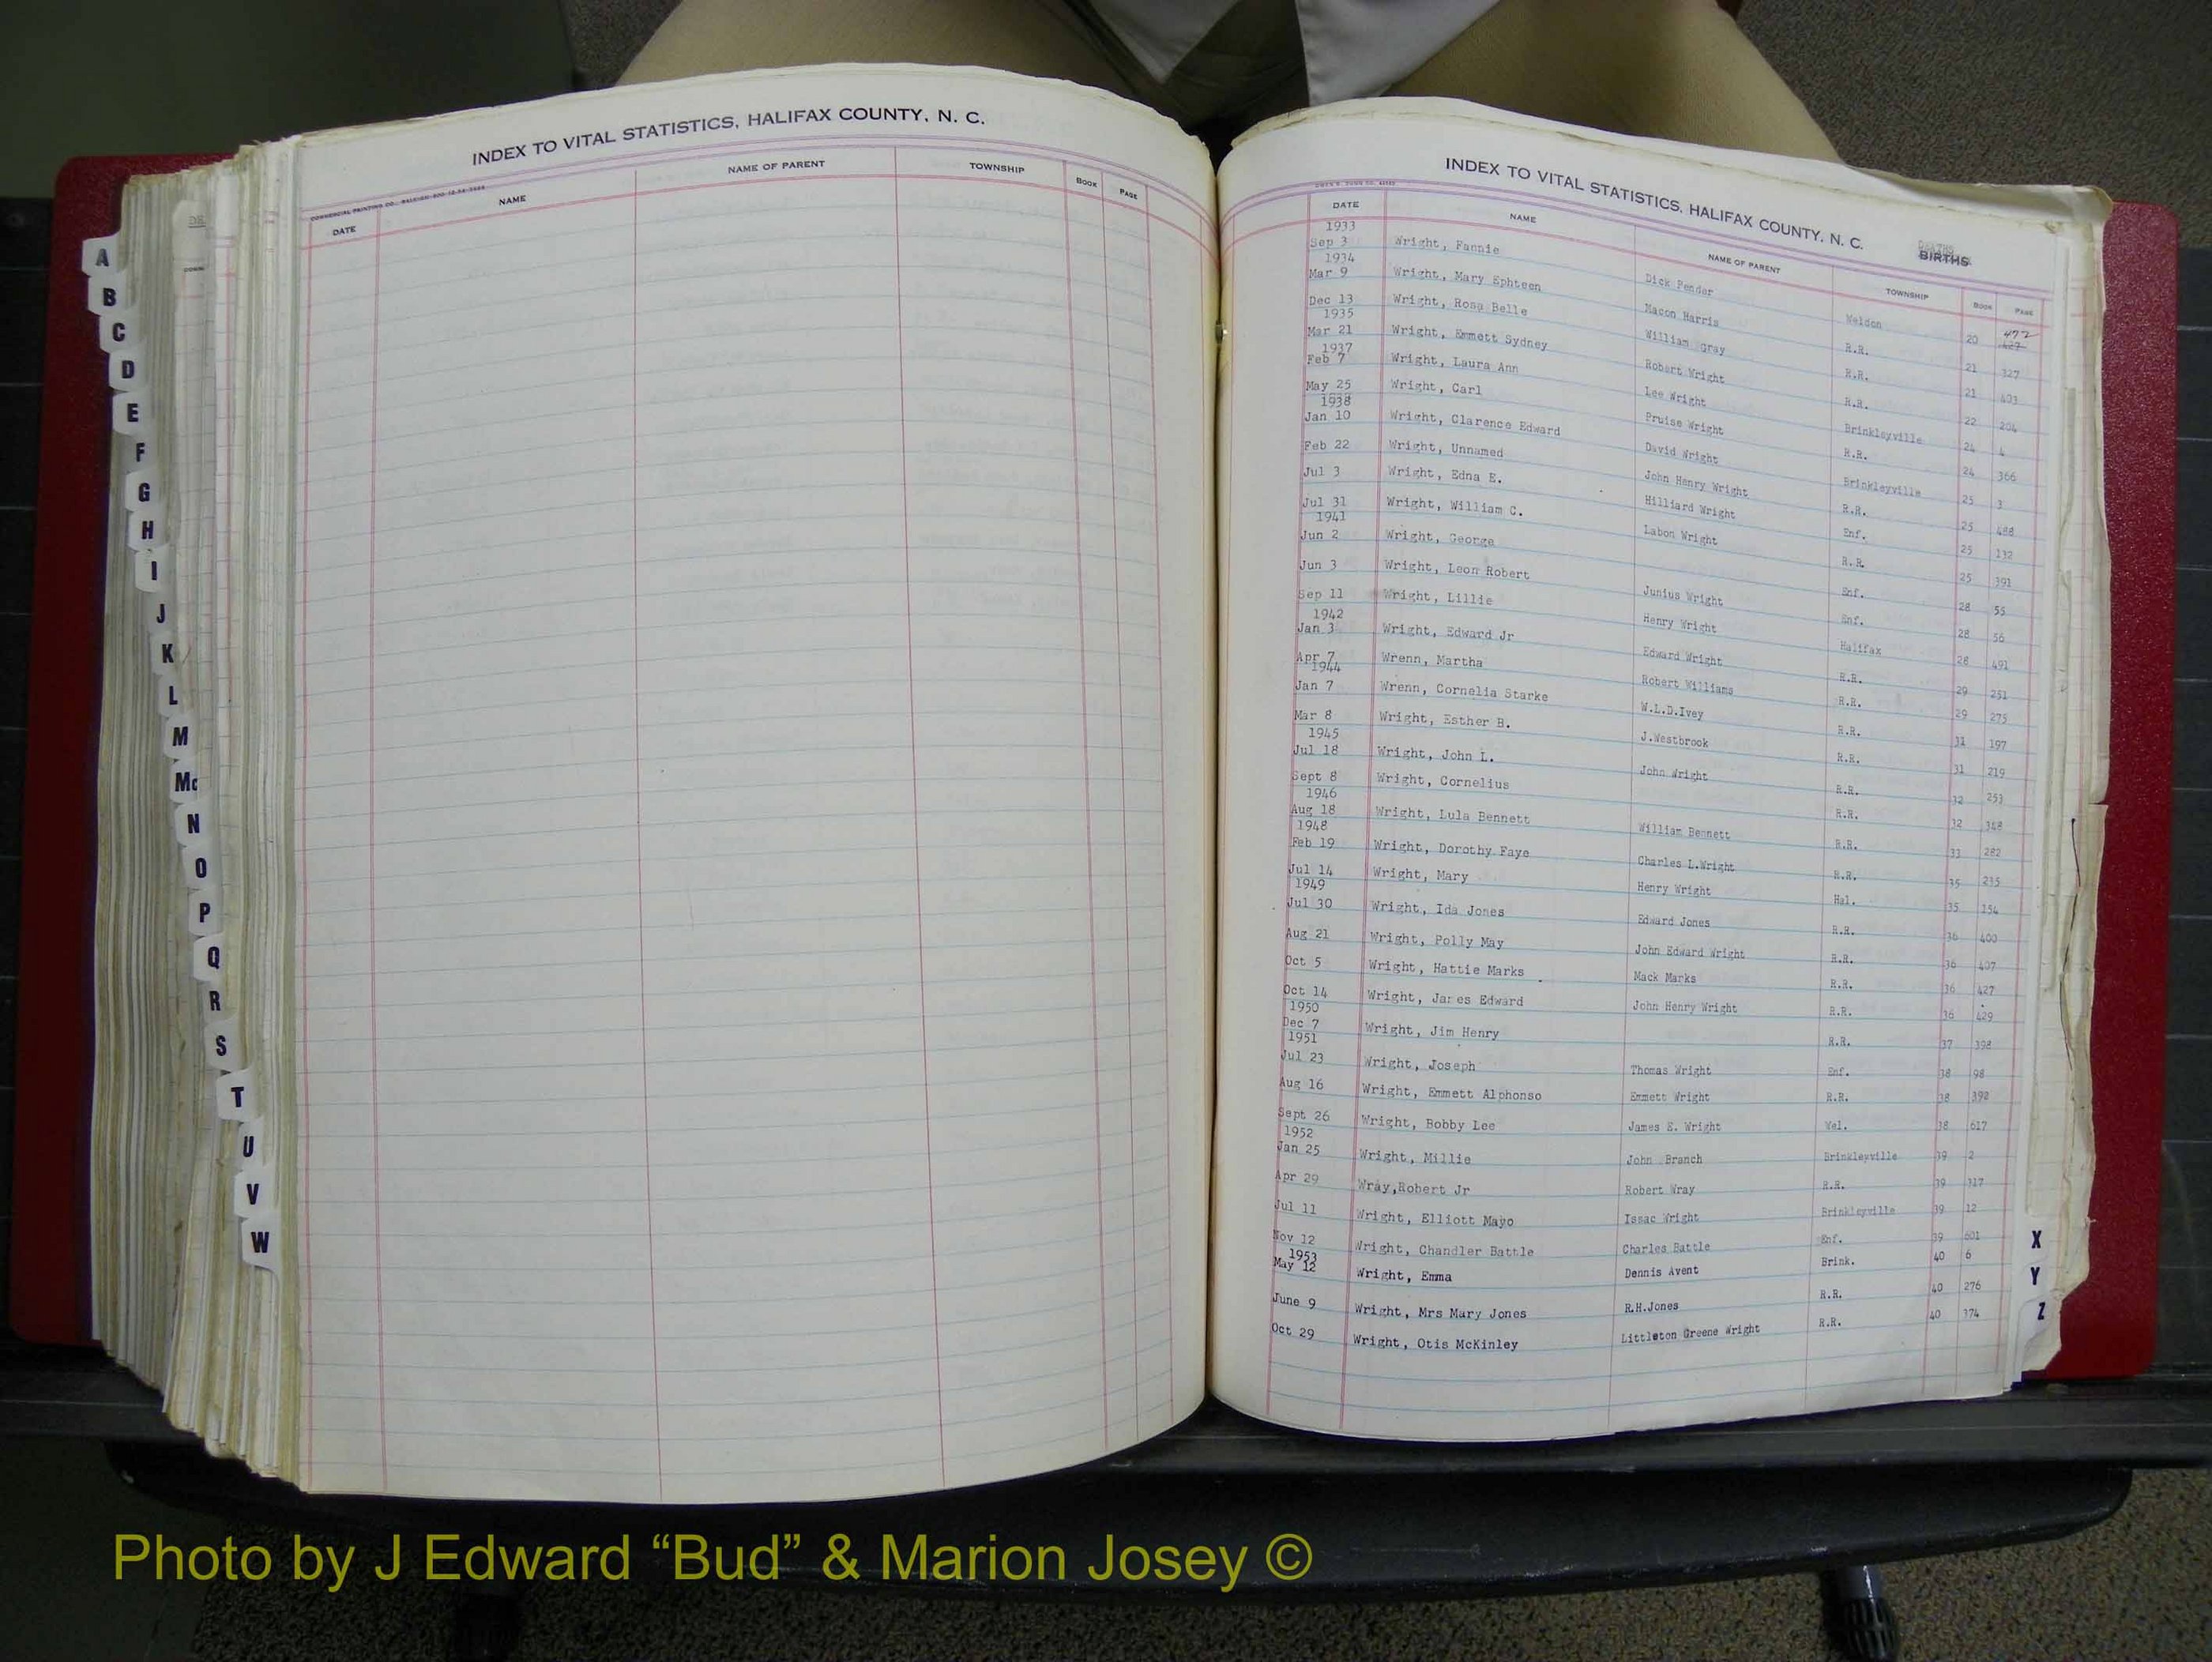 INDEX TO VITAL STATISTICS, HALIFAX COUNTY, N. C.
DATE NAME NAME OF PARENT TOWNSHIP BOOK PAGE
A
B
C
D
E
F
G
H
I
J
K
L
M
Mc
N
O
P
Q
R
S
T
U
V
W
INDEX TO VITAL STATISTICS, HALIFAX COUNTY, N. C. DEATHS BIRTHS
DATE NAME NAME OF PARENT TOWNSHIP BOOK PAGE
1933
Sep 3 Wright, Fannie Dick Pender Weldon 20 472
1934
Mar 9 Wright, Mary Ephteen Macon Harris R.R. 21 327
Dec 13 Wright, Rosa Belle William Gray R.R. 21 403
1935
Mar 21 Wright, Emmett Sydney Robert Wright R.R. 22 204
1937
Feb 7 Wright, Laura Ann Lee Wright Brinkleyville 24 4
May 25 Wright, Carl Pruise Wright R.R. 24 366
1938
Jan 10 Wright, Clarence Edward David Wright Brinkleyville 25 3
Feb 22 Wright, Unnamed John Henry Wright R.R. 25 488
Jul 3 Wright, Edna E. Hilliard Wright Enf. 25 132
Jul 31 Wright, William C. Labon Wright R.R. 25 391
1941
Jun 2 Wright, George Enf. 28 55
Jun 3 Wright, Leon Robert Junius Wright Enf. 28 56
Sep 11 Wright, Lillie Henry Wright Halifax 28 491
1942
Jan 3 Wright, Edward Jr Edward Wright R.R. 29 251
Apr 7 Wrenn, Martha Robert Williams R.R. 29 275
1944
Jan 7 Wrenn, Cornelia Starke W.L.D.Ivey R.R. 31 197
Mar 8 Wright, Esther B. J.Westbrook R.R. 31 219
1945
Jul 18 Wright, John L. John Wright R.R. 32 253
Sept 8 Wright, Cornelius R.R. 32
1946
Aug 18 Wright, Lula Bennett William Bennett R.R. 33 282
1948
Feb 19 Wright, Dorothy Faye Charles L.Wright R.R. 35 235
Jul 14 Wright, Mary Henry Wright Hal. 35 154
1949
Jul 30 Wright, Ida Jones Edward Jones R.R. 36 400
Aug 21 Wright, Polly May John Edward Wright R.R. 36 407
Oct 5 Wright, Hattie Marks Mack Marks R.R. 36 427
Oct 14 Wright, James Edward John Henry Wright R.R. 36 429
1950
Dec 7 Wright, Jim Henry R.R. 37 398
1951
Jul 23 Wright, Joseph Thomas Wright Enf. 38 98
Aug 16 Wright, Emmett Alphonso Emmett Wright R.R. 38 392
Sept 26 Wright, Bobby Lee James E. Wright Wel. 38 617
1952
Jan 25 Wright, Millie John Branch Brinkleyville 39 2
Apr 29 Wray,Robert Jr Robert Wray R.R. 39 317
Jul 11 Wright, Elliott Mayo Issac Wright Brinkleyville 39 12
Nov 12 Wright, Chandler Battle Charles Battle Enf. 39 601
1953
May 12 Wright, Emma Dennis Avent Brink. 40 6
June 9 Wright, Mrs Mary Jones R.H.Jones R.R. 40 276
Oct 29 Wright, Otis McKinley Littleton Greene Wright R.R. 40 374
X
Y
Z
Photo by J Edward “Bud” & Marion Josey ©